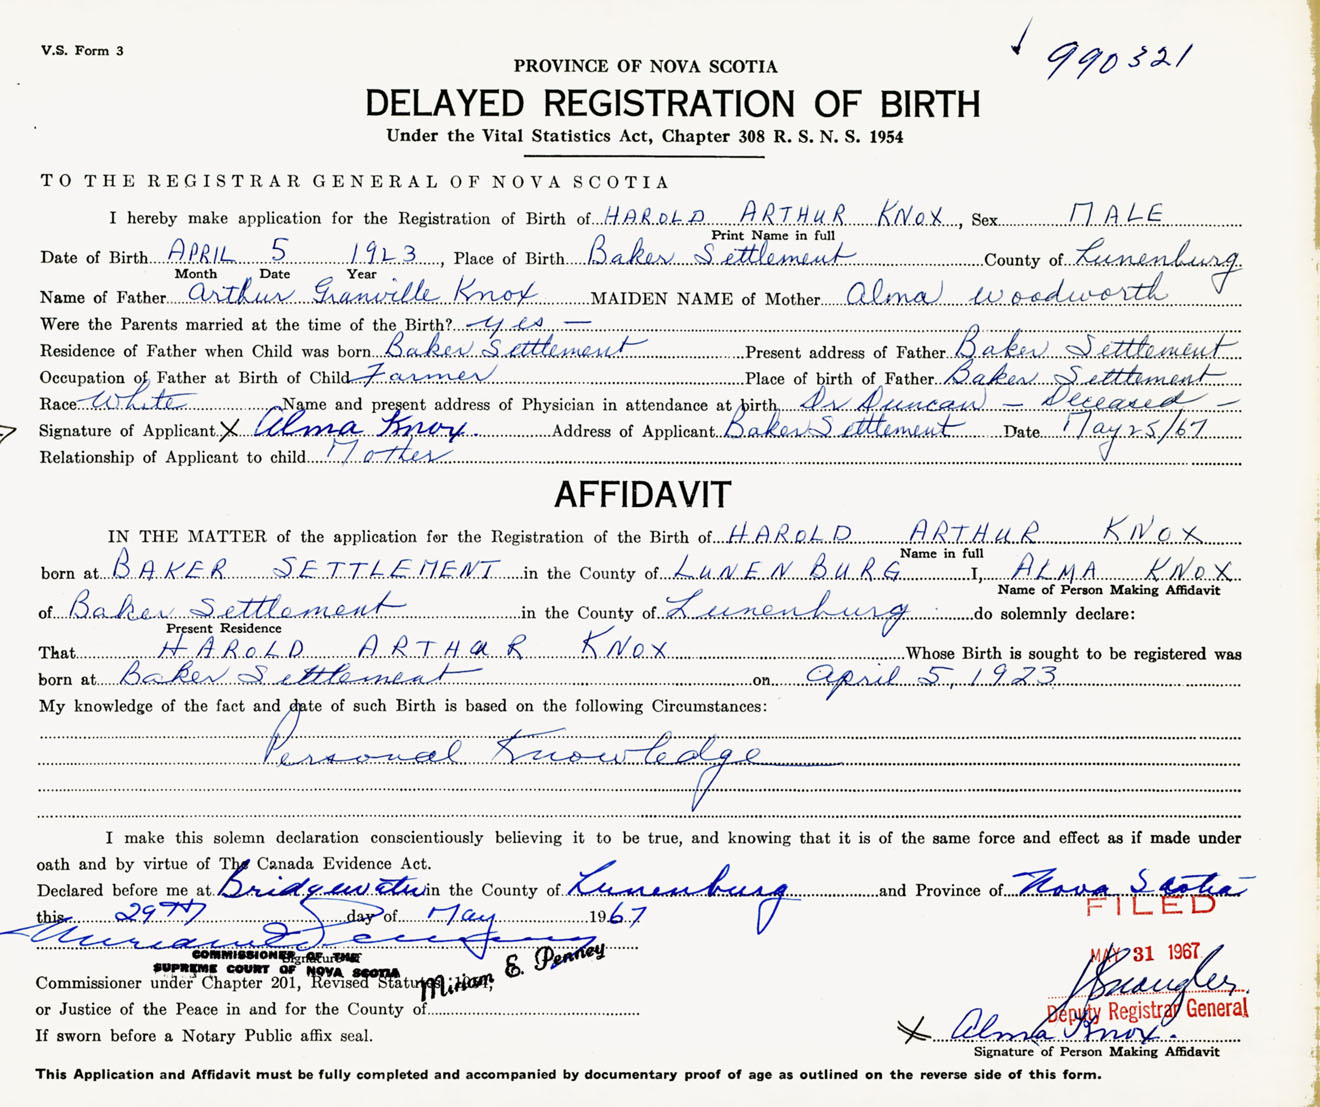 V.S. Form 3
990321
PROVINCE OF NOVA SCOTIA
DELAYED REGISTRATION OF BIRTH
Under the Vital Statistics Act, Chapter 308 R. S. N. S. 1954
TO THE REGISTRAR GENERAL OF NOVA SCOTIA
I hereby make application for the Registration of Birth of HAROLD ARTHUR KNOX, Sex MALE
Print Name in full
Date of Birth APRIL 5 1923, Place of Birth Baker Settlement County of Lunenburg
Month Date Year
Name of Father Arthur Granville Knox MAIDEN NAME of Mother Alma Woodworth
Were the Parents married at the time of the Birth? yes —
Residence of Father when Child was born Baker Settlement Present address of Father Baker Settlement
Occupation of Father at Birth of Child Farmer Place of birth of Father Baker Settlement
Race White Name and present address of Physician in attendance at birth Dr Duncan – Deceased –
Signature of Applicant X Alma Knox. Address of Applicant Baker Settlement Date May 25/67
Relationship of Applicant to child Mother
AFFIDAVIT
IN THE MATTER of the application for the Registration of the Birth of HAROLD ARTHUR KNOX
Name in full
born at BAKER SETTLEMENT in the County of LUNENBURG I, ALMA KNOX
Name of Person Making Affidavit
of Baker Settlement in the County of Lunenburg do solemnly declare:
Present Residence
That HAROLD ARTHUR KNOX Whose Birth is sought to be registered was
born at Baker Settlement on April 5, 1923
My knowledge of the fact and date of such Birth is based on the following Circumstances:
Personal Knowledge
I make this solemn declaration conscientiously believing it to be true, and knowing that it is of the same force and effect as if made under
oath and by virtue of The Canada Evidence Act.
Declared before me at Bridgewater in the County of Lunenburg and Province of Nova Scotia
FILED
this 29th day of May 1967
Miriam E. Penney
Signature
COMMISSIONER OF THE
SUPREME COURT OF NOVA SCOTIA
Miriam E. Penney
MAY 31 1967
Commissioner under Chapter 201, Revised Statutes,
or Justice of the Peace in and for the County of
Deputy Registrar General
If sworn before a Notary Public affix seal.
X Alma Knox.
Signature of Person Making Affidavit
This Application and Affidavit must be fully completed and accompanied by documentary proof of age as outlined on the reverse side of this form.